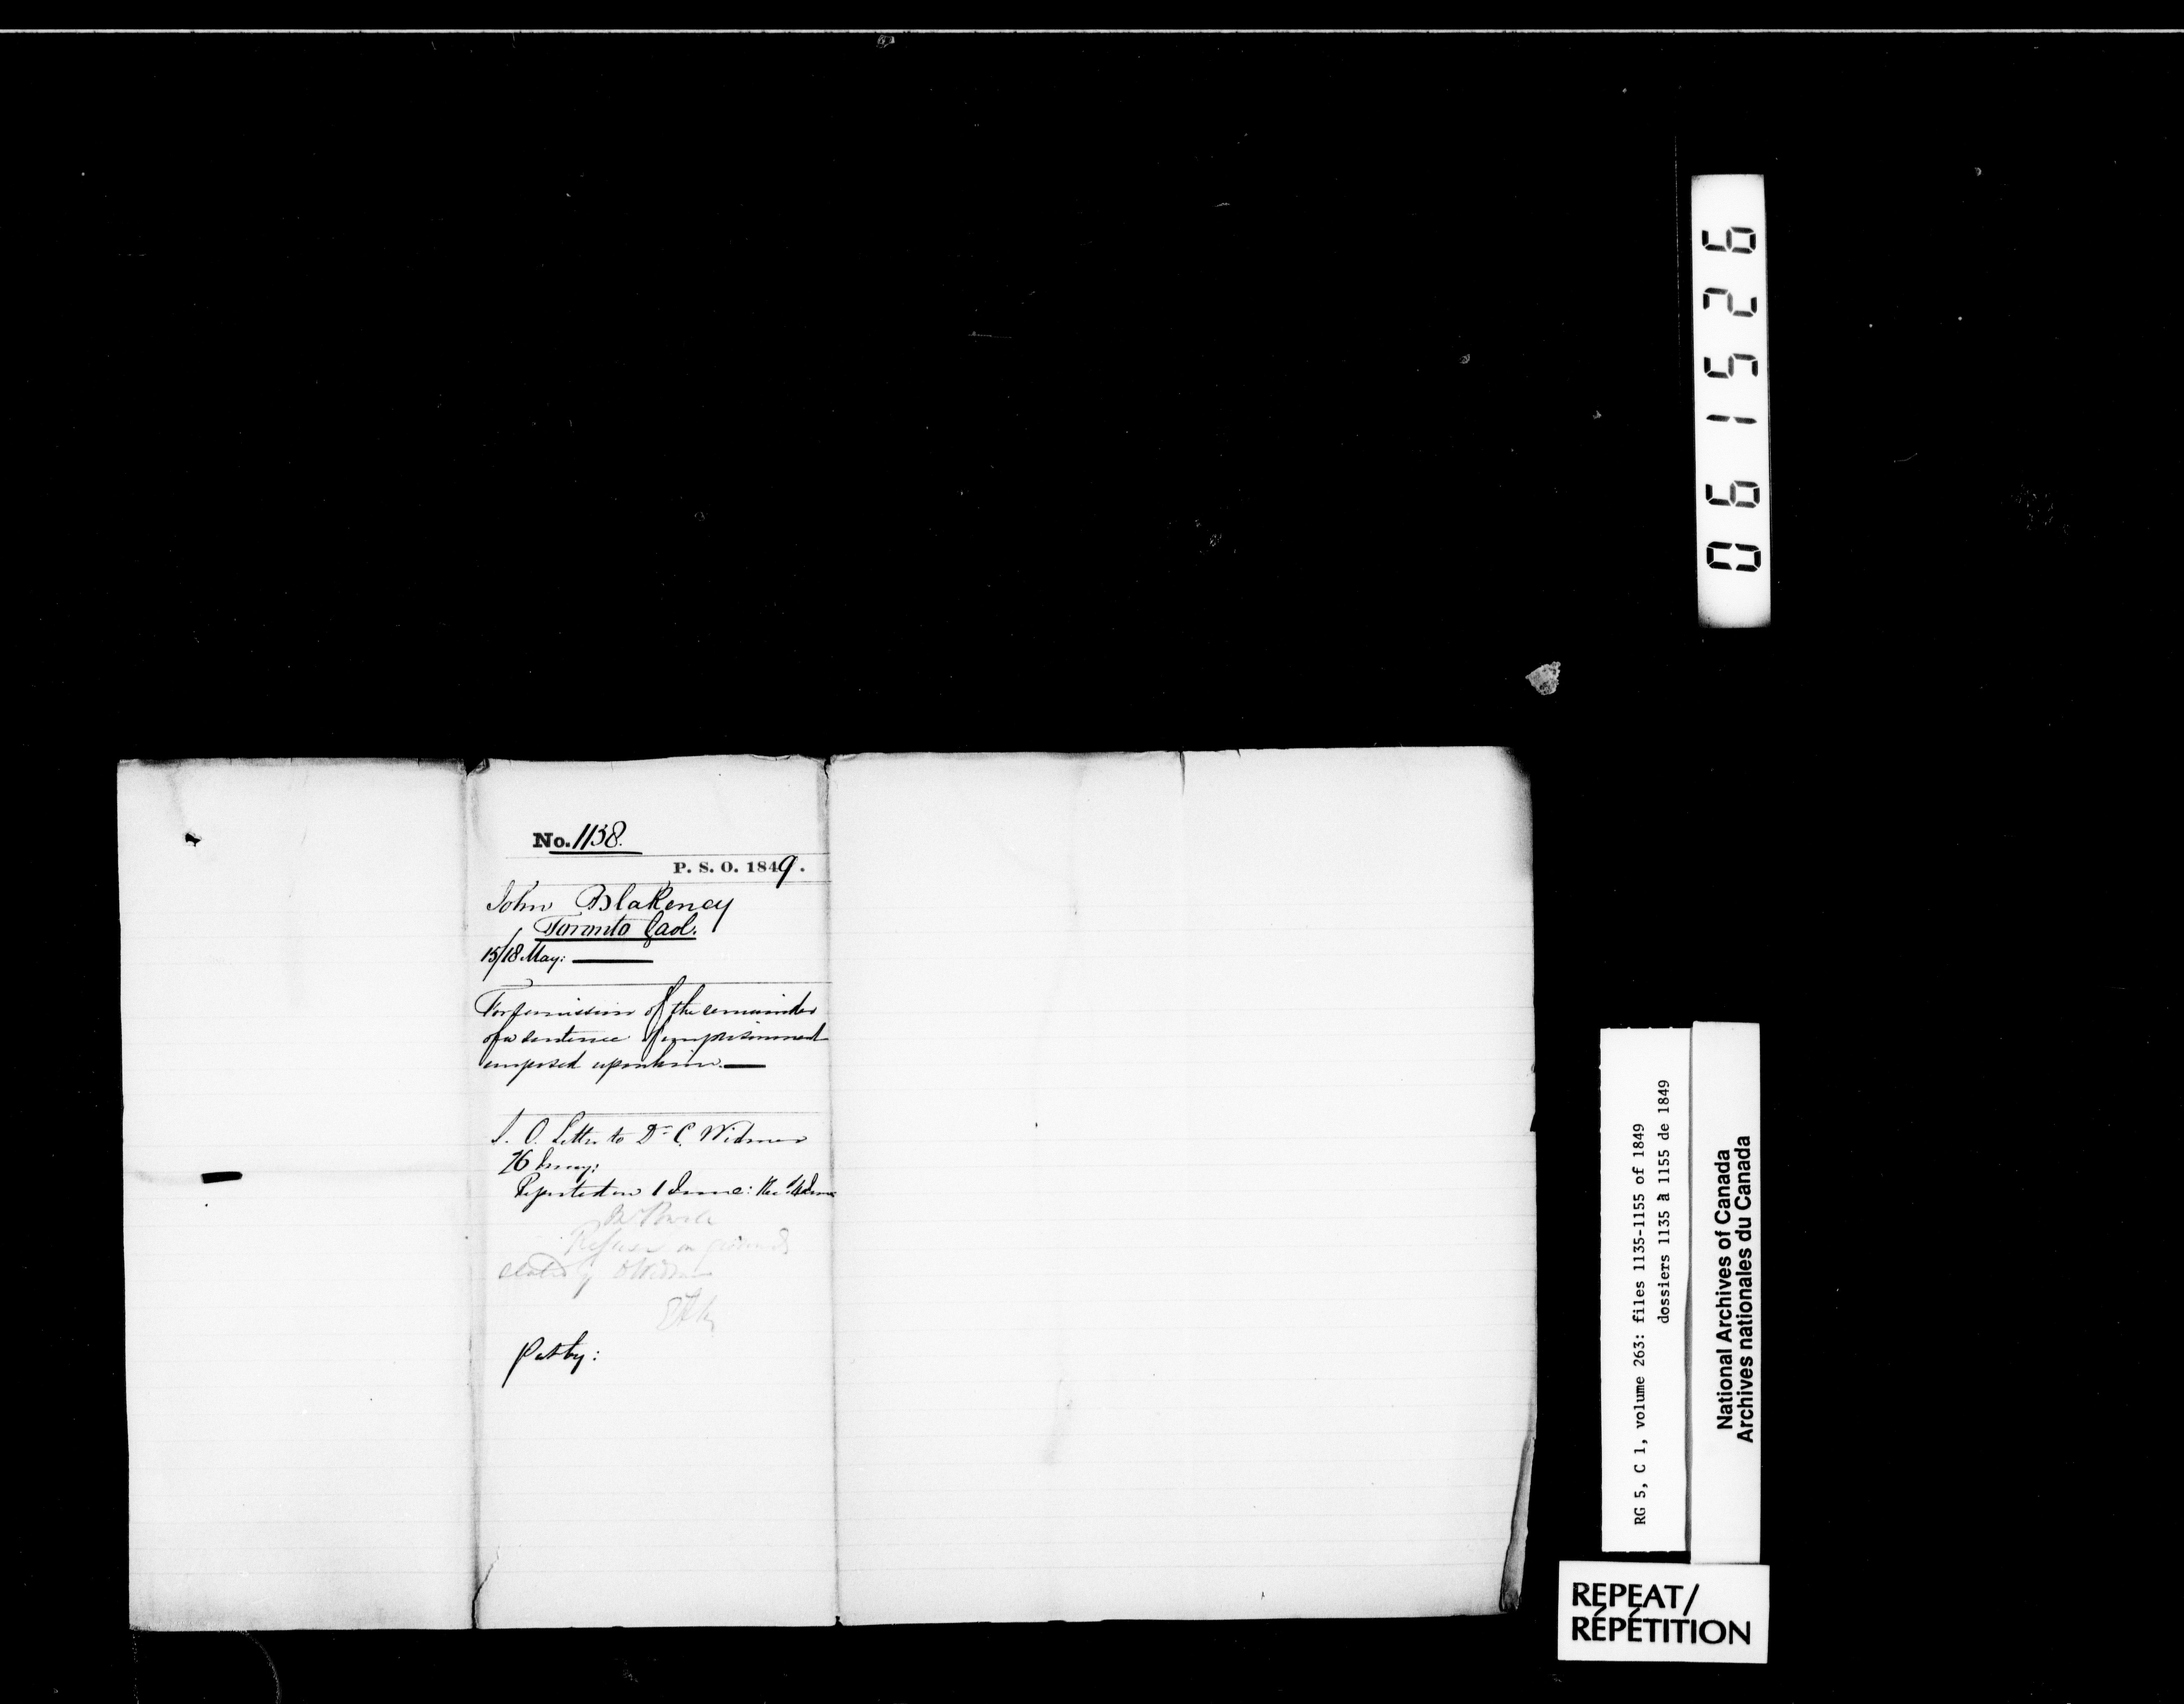 No. 1138.
P. S. O. 1849.
John Blakeney
Toronto Gaol.
15/18 May:
For remission of the remainder
of a sentence of imprisonment
imposed upon him.
Letter to Dr. C. Widmer
26 May:
Reported on 1 June: Rec. 4 June
Refuse on grounds
stated by Dr Widmer
061526
RG 5, C 1, volume 263: files 1135-1155 of 1849
dossiers 1135 à 1155 de 1849
National Archives of Canada
Archives nationales du Canada
REPEAT/
RÉPÉTITION